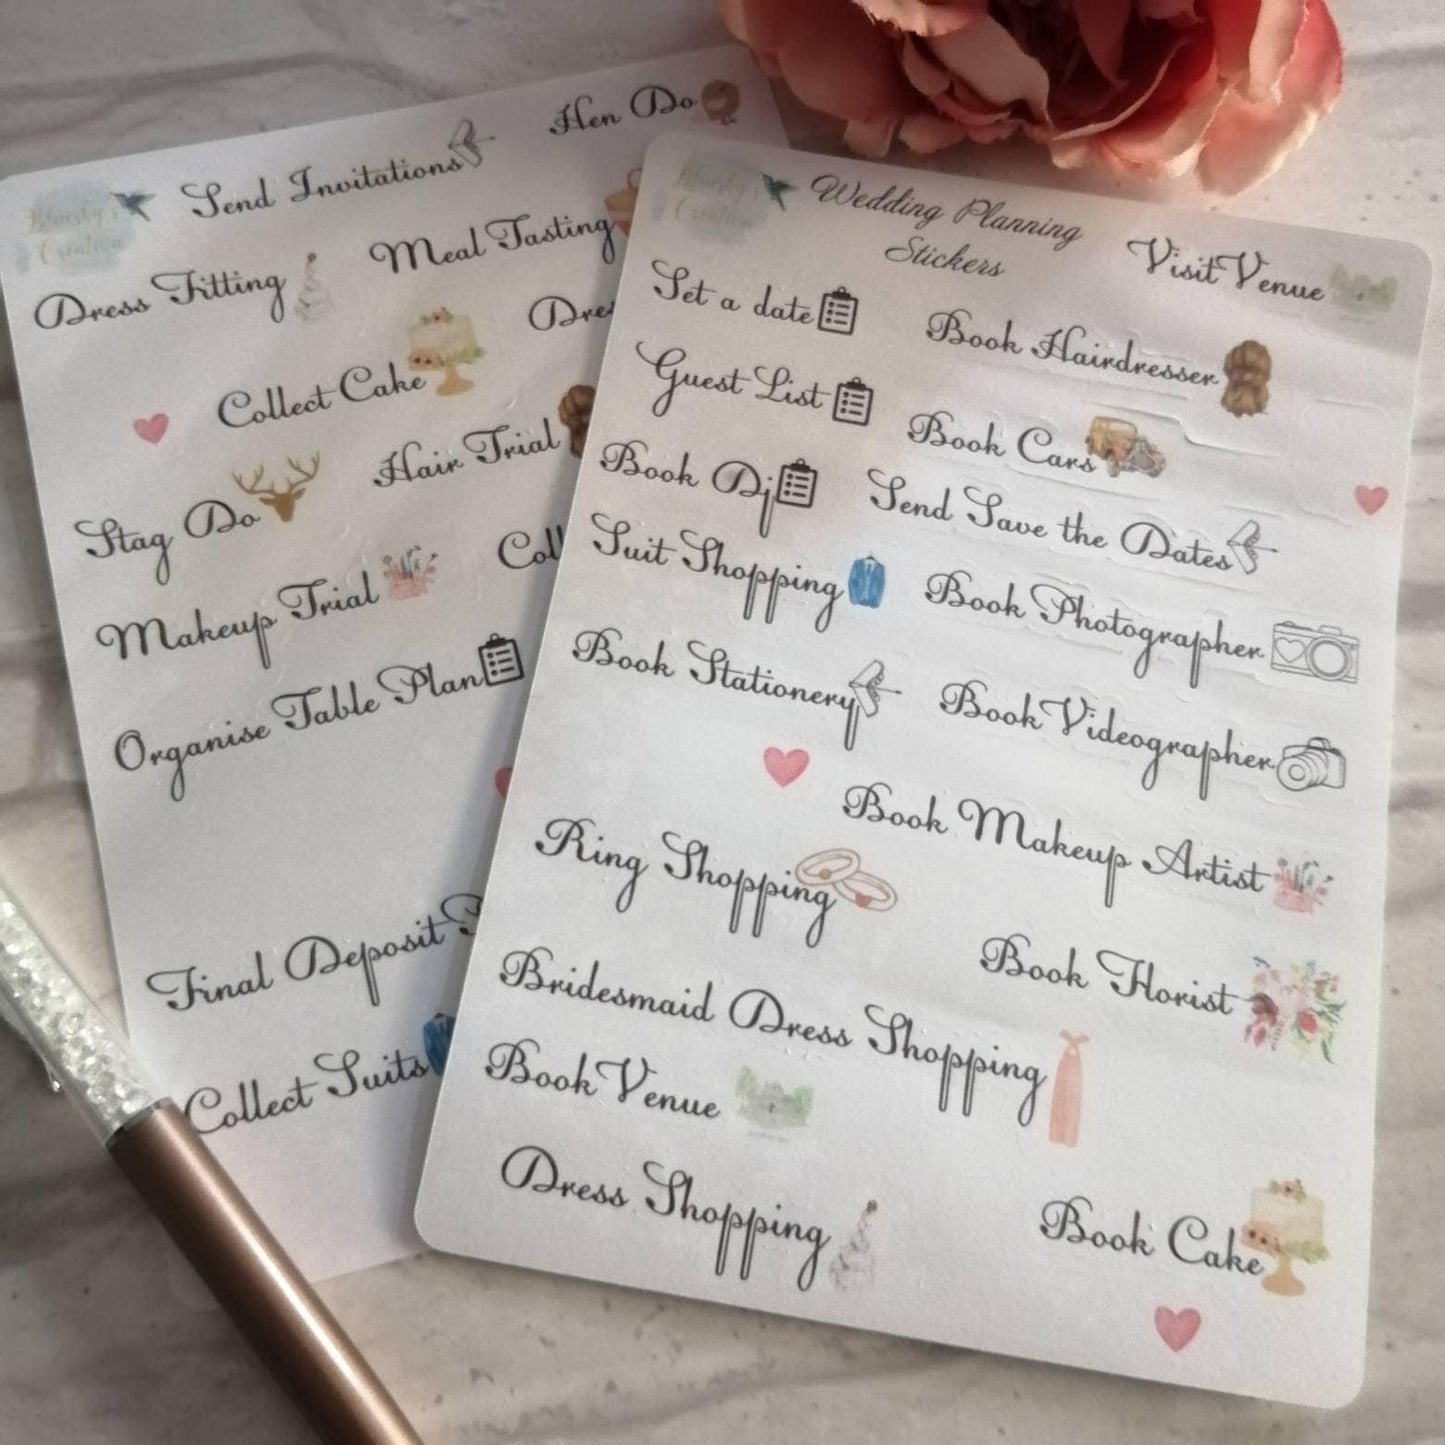 Hen Do
Send Invitations
Bluesky's
Creation
Meal Tasting
Dress Fitting
Collect Cake
Hair Trial
Stag Do
Makeup Trial
Organise Table Plan
Final Deposit
Collect Suits
Wedding Planning
Stickers
Visit Venue
Set a date
Book Hairdresser
Guest List
Book Cars
Book Dj
Send Save the Dates
Suit Shopping
Book Photographer
Book Stationery
Book Videographer
Book Makeup Artist
Ring Shopping
Book Florist
Bridesmaid Dress Shopping
Book Venue
Dress Shopping
Book Cake